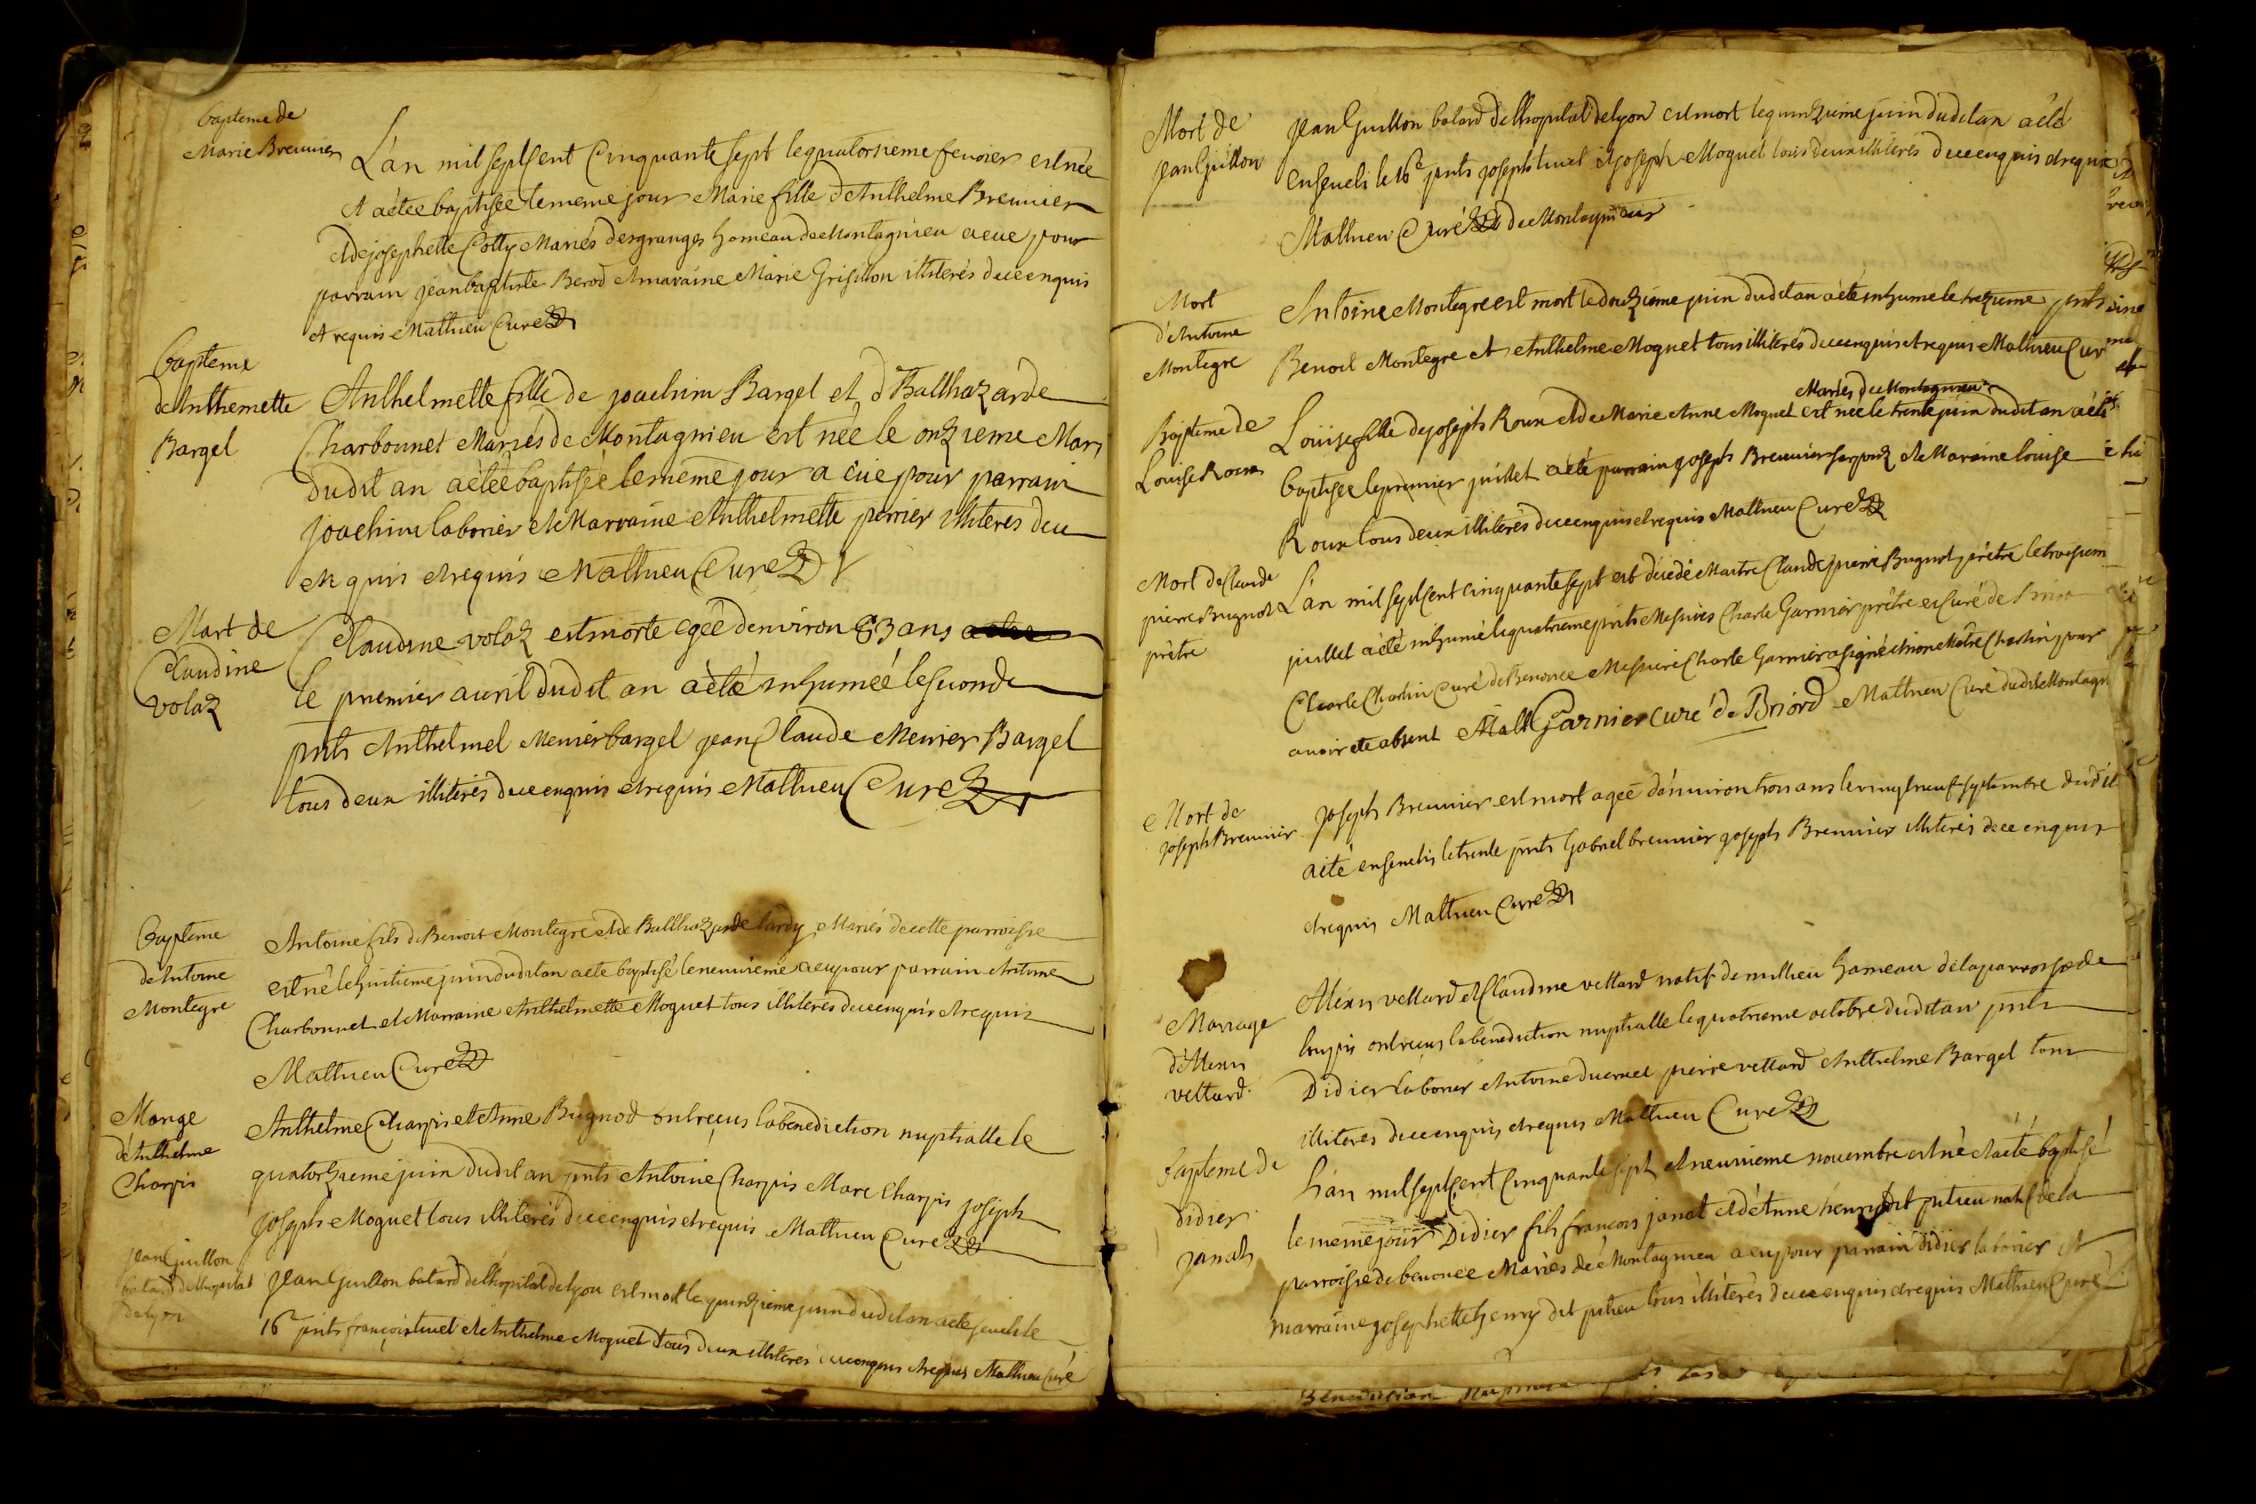 bapteme de
Marie Breunier
L'an mil sept Cent Cinquante Sept le quatorsieme fevrier est née
et a etee baptisée le meme jour Marie fille d'Anthelme Breunier
et de josephette Cotty Mariés desgranges hameau de Montagnieu a eue pour
parrain jean baptiste Berod et maraine Marie Grisillon illiterés de ce enquis
et requis Mathieu Curé
bapteme
de Anthemette
Bargel
Anthelmette fille de joachim Bargel et d'Balthazarde
Charbonnet Mariés de Montagnieu est née le onzieme Mars
dudit an a étée baptisée le meme jour a eüe pour parrain
joachim laborier et Marraine Anthelmette perrier illiteres de ce
en quis et requis Mathieu Curé
Mort de
Claudine
volaz
Claudine volaz est morte egée denviron 83 ans
le premier auril dudit an a été inhumée le second
pnts Anthelmel Menier bargel jean Claude Menier Bargel
tous deux illiterés de ce enquis et requis Mathieu Curé
Bapteme
d'Antoine
Montegre
Antoine fils de Benoit Montegre et de Balthazarde lardy Mariés de cette parroisse
est né le huitieme juin dudit an a ete baptisé le neuvieme a eu pour parrain Antoine
Charbonnet et Marraine Anthelmette Moguet tous illiterés de ce enquis et requis
Mathieu Curé
Mariage
d'Anthelme
Charpis
Anthelme Charpis et Anne Bugnod ont reçus la benediction nuptialle le
quatorzieme juin dudit an pnts Antoine Charpis Marc Charpis joseph
joseph Moguet tous illiterés de ce enquis et requis Mathieu Curé
jean Guillon
batard de lhopital
de lyon
jean Guillon batard de lhopital de lyon est mort le quinzieme juin dudit an a eté seveli le
16e pnts françois tinet et Anthelme Moguet tous deux illiteres de ce enquis et requis Mathieu Curé
Mort de
jean Guillon
jean Guillon batard de lhopital de lyon est mort le quinzieme juin dudit an a été
enseveli le 16e pnts joseph tinet et joseph Moguet tous deux illiterés de ce enquis et requis
Mathieu Curé de Montagnieu
Mort
d'Antoine
Montegre
Antoine Montegre est mort le douzieme juin dudit an a été inhume le treizieme pnts
Benoit Montegre et Anthelme Moguet tous illiterés de ce enquis et requis Mathieu Cur
Bapteme de
Louise Roux
Mariés de Montagnieu
Louise fille de joseph Roux et de Marie Anne Moguet est née le trente juin dudit an a été
baptisée le premier juillet a été parrain joseph Breunier et Maraine louise
Roux tous deux illiterés de ce enquis et requis Mathieu Curé
Mort de Claude
pierre Bugnod
prêtre
L'an mil sept Cent cinquante sept est décédé Maitre Claude pierre Bugnot prêtre le troisiem
juillet a été inhumé le quatrieme pnts Messires Charle Garnier prêtre et Curé de
Charle Charlin Curé de Benonce Messire Charle Garnier a signé et non Maitre Charlin pour
avoir ete absent Garnier curé de Briord Mathieu Curé dudit Montagn
Mort de
joseph Breunier
joseph Breunier est mort agée d'environ trois ans le vingt neuf septembre dudit
a eté ensevelis le trente pnts Gabriel breunier joseph Breunier illiterés de ce enquis
et requis Mathieu Curé
Mariage
d'Alexis
vettard
Alexis vettard et Claudine vettard natif de millieu hameau de la parroisse de
ont reçus la benediction nuptialle le quatrieme octobre dudit an pnts
Didier laborier Antoine ducruet pierre vettard Anthelme Bargel tous
illiteres de ce enquis et requis Mathieu Curé
bapteme de
didier
janat
L'an mil sept Cent Cinquante sept et neuvieme novembre est né et a été baptisé
le meme jour Didier fils francois janat et d'Anne henry dit putieu natif de la
parroisse de benonce Mariés de Montagnieu a eu pour parrain didier laborier et
marraine josephette henry dit putieu tous illiterés de ce enquis et requis Mathieu Curé
Benediction